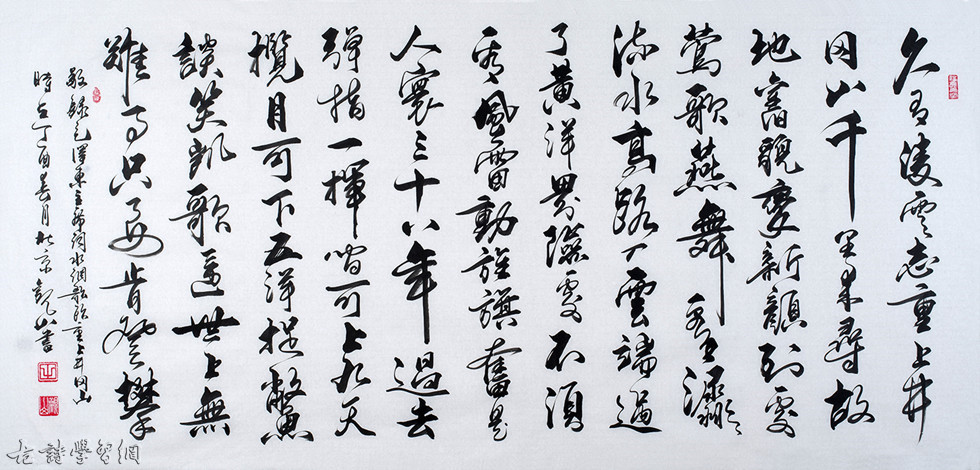 久有凌雲志重上井
岡山千里来尋故
地舊貌變新顔到處
鶯歌燕舞更有潺潺
流水高路入雲端過
了黄洋界險處不須
看風雷動旌旗奮是
人寰三十八年過去
彈指一揮間可上九天
攬月可下五洋捉鱉
談笑凱歌還世上無
難事只要肯登攀
敬録毛澤東主席詞水調歌頭重上井岡山
時在丁酉春月北京觀山書
學習網